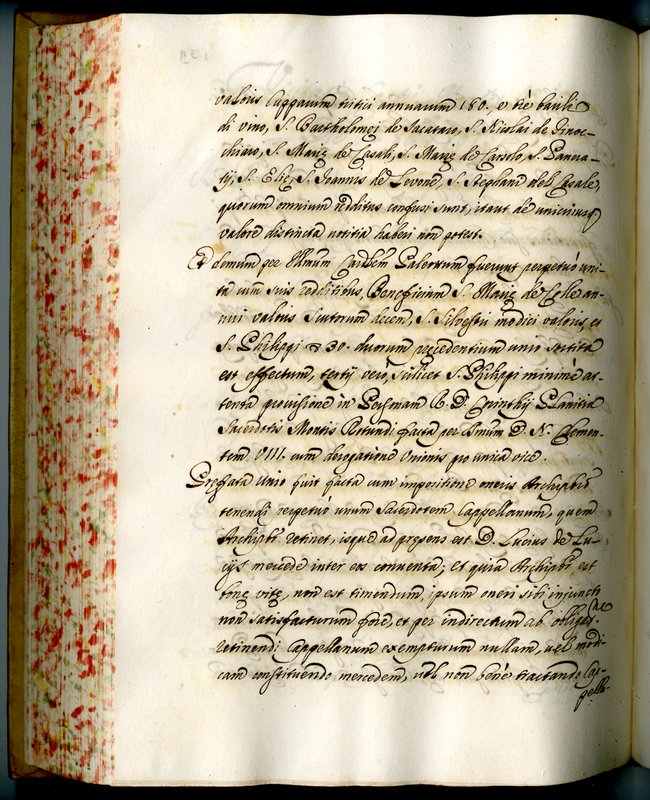 valoris Cuppaurum tritici annuarum 180. e trè barili
di vino, S. Bartholomęi de Jacataro, S. Nicolai de Ginoc-
chiaro, S. Marię de Casali, S. Marię de Cersolo, S. Pancra-
tij, S. Elię, S. Joannis de Levone, S. Stephani del Casale,
quorum omnium redditus confusi sunt, itaut de uniuscuiusq
valore distincta notitia haberi non potest.
Et demum per Illmum Cardlem Paleottum fuerunt perpetuò uni-
ta cum suis redditibus, Beneficium S. Marię de Colle an-
nui valoris Scutorum decem, S. Silvestri modici valoris, et
S. Philippi 30. duorum pręcedentium unio sortita
est effectum, tertij verò, scilicet S. Philippi minimè at-
tenta provisione in Personam R. D. Corinthij Planitia
Sacerdotis Montis Rotundi facta per Smum D. N. Clemen-
tem VIII. cum derogatione Unionis pro unica vice.
Pręfata Unio fuit facta cum impositione oneris Archiptro
tenendi perpetuò unum Sacerdotem Cappellanum, quem
Archiptr retinet, isque ad pręsens est D. Lucius de Lu-
cijs mercede inter eos conventa; et quia Archiptr est
bonę vitę, non est timendum, ipsum oneri sibi injuncto
non satisfacturum fore, et per indirectum ab obligne
retinendi Cappellanum exempturum nullam, vel modi-
cam constituendo mercedem, vel non benè tractando Cap-
pella-